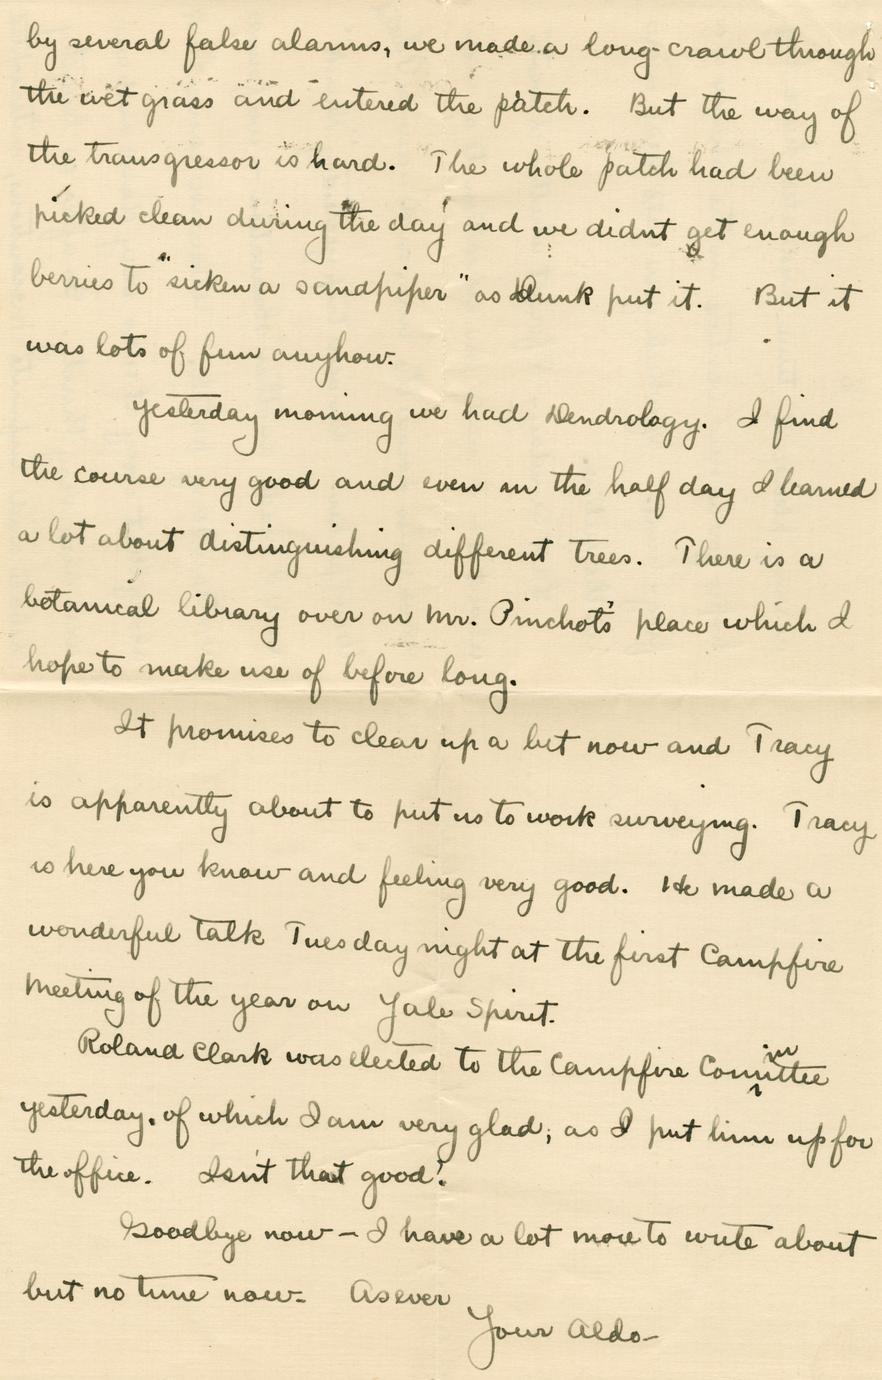 by several false alarms, we made a long crawl through
the wet grass and entered the patch. But the way of
the transgressor is hard. The whole patch had been
picked clean during the day and we didnt get enough
berries to "sicken a sandpiper" as Dunk put it. But it
was lots of fun anyhow.
Yesterday morning we had Dendrology. I find
the course very good and even in the half day I learned
a lot about distinguishing different trees. There is a
botanical library over on Mr. Pinchot's place which I
hope to make use of before long.
It promises to clear up a bit now and Tracy
is apparently about to put us to work surveying. Tracy
is here you know and feeling very good. He made a
wonderful talk Tuesday night at the first Campfire
Meeting of the year on Yale Spirit.
Roland Clark was elected to the Campfire Committee
yesterday, of which I am very glad, as I put him up for
the office. Isn't that good!
Goodbye now – I have a lot more to write about
but no time now. As ever
Your Aldo –